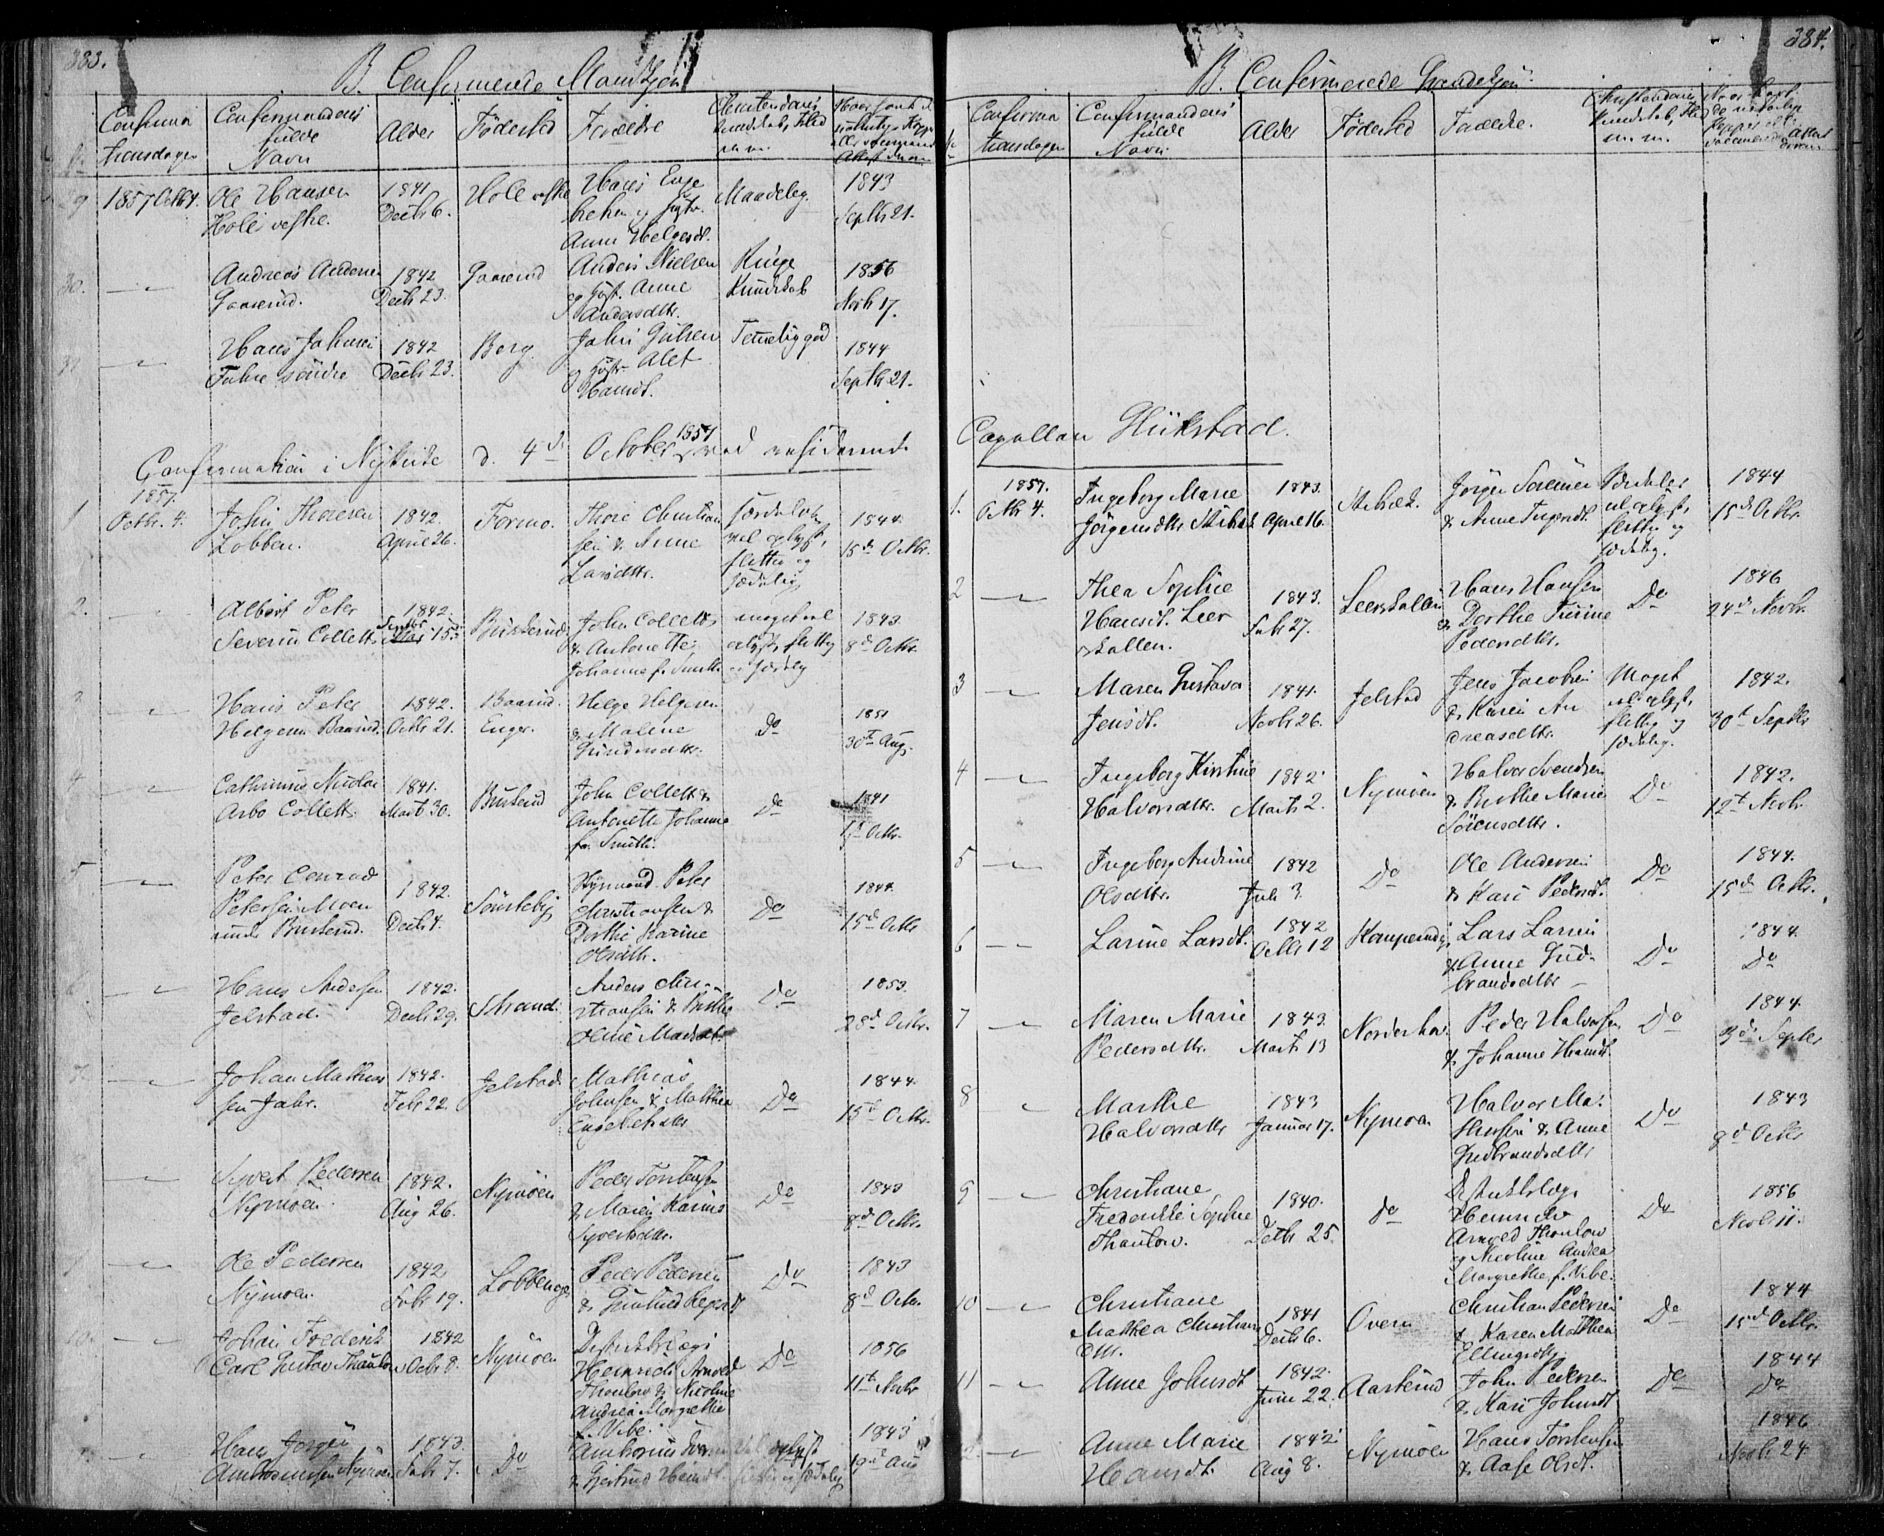 383.
B. Confirmerede Mandkjøn
Confirma
tionsdagen
Confirmandens
fulde
Navn
Alder
Fødested
Forældre
Christendoms
kundskab, Flid
m. m.
29 1857 Octb 4. Ole Hansen
Hole vestre.
1841
Decbr 6.
Hole vestre
Hans Enge
bretsen og Hustr.
Anne Helgesdt.
Maadelig.
1843
Septbr 21.
30. — Andreas Andersen
Gaaserud.
1842
Decbr 23.
Gaaserud
Anders Nielsen
og Hust. Anne
Andersdtr.
Ringe
Kundskab
1856
Novbr 17.
31 — Hans Johnsen
søndre
1842
Decbr 23.
Borg
John Gulsen
og Hustr. Alet
Hansdt.
Temelig god
1844
Septbr 21.
Confirmation i Nykirke d. 4de October 1857 ved residerende
1. 1857.
Octbr. 4.
John Thoresen
Lobben.
1842.
April 26.
Formo.
Thore Christian
sen & Anne
Larsdtr.
særdeles
vel oplyst,
flittig og
sædelig
1844.
15de Octbr.
2. — Albert Peter
Severin Collett.
1842.
Septbr 15.
Buskerud
John Collett
& Antonette
Johanne f. Smith
meget vel
oplyst, flittig
og sædelig
1843
8de Octbr.
3 — Hans Peter
Helgesen Baasrud.
1842.
Octbr 21.
Baasrud.
Enger.
Helge Helgesen
& Malene
Gundersdtr.
Do
1851
30te Aug.
4 — Cathrinus Nicolai
Arbo Collett.
1841.
Marts 30.
Buskerud
John Collett &
Antonette Johanne
fød Smith.
Do
1841
Octbr.
5 — Peter Conrad
Petersen Moen
under Buskerud.
1842.
Decbr 4.
Sønsteby
Styrmand Peter
Christiansen &
Dorthe Karine
Olsdtr.
Do
1844.
15de Octbr
6. — Hans Andersen
Jelstad.
1842.
Decbr 29.
Strand.
Anders Chri-
stiansen & Berthe
Oline Madsdt.
Do
1853.
28de Octbr.
7. — Johan Mathias
sen Jahr.
1842.
Febr 22.
Jelstad
Mathias
Johnsen & Mathea
Engebretsdtr
Do
1844.
15de Octbr.
— Syvert Pedersen
Nymoen.
1842.
Aug 26.
Nymoen
Peder Torstensen
& Maren Karine
Syvertsdtr.
Do
1843
8de Octbr.
9 — Ole Pedersen
Nymoen.
1842
Febr 19.
Peder Pedersen
& Gunhild
Do
1843
8de Octbr.
10. — Johan Frederik
Carl Gustav Thaulow
1842
Octbr 8.
Nymoen
Districtslæge
Heinrich Arnold
Thaulow & Nicoline
Andrea Margrethe
f. Vibe.
Do
1856
11te Novbr
Hans Jørgen
Nymoen
1843.
Febr 7.
Do
& Gjertrud Hansdt.
Vel oplyst
flittig og sædelig
1843
384.
B. Confirmerede Qvindekjøn.
Confirma
tionsdagen
Confirmandens
fulde
Navn
Alder
Fødested
Forældre.
Christendoms
kundskab, Flid
m. m.
Capellan Hukstad.
1. 1857.
Octbr 4.
Ingeborg Marie
Jørgensdtr
1843.
April 16.
Jørgen Sørensen
& Anne
Særdeles
vel oplyst,
flittig og
sædelig.
1844
15de Octbr.
2 — Thea Sophie
Hansdt. Leer
skallen.
1843.
Febr 27.
Leerskallen
Hans Hansen
& Dorthe Turine
Pedersdtr.
Do
1846
24de Novbr.
3 — Maren Gustava
Jensdt.
1841.
Novbr 26.
Jelstad
Jens Jacobsen
& Karen An
dreasdtr.
Meget
vel oplyst,
flittig og
sædelig.
1842.
30te Septbr
4 — Ingeborg Kirstine
Halvorsdtr.
1842
Marts 2.
Nymoen
Halvor Svendsen
& Berthe Marie
Sørensdtr.
Do
1842.
12te Novbr.
5 — Ingeborg Andrine
Olsdtr.
1842
Juli 3.
Do
Ole Andersen
& Kari Pedersdt.
Do
1844.
15de Octbr.
6 — Larine Larsdt.
1842
Octbr 12
Lars Larsen
& Anne Gud-
brandsdtr
Do
1844.
Do
7 — Maren Marie
Pedersdtr.
1843.
Marts 13
Norderhov.
Peder Halvorsen
& Johanne Hansdt.
Do
1844.
3de Septbr
8 — Marthe
Halvorsdtr
1843
Januar 17.
Nymoen
Halvor Ma-
thisen & Anne
Gudbrandsdtr
Do
1843
8de Octbr
9 — Christiane
Frederikke Sophie
Thaulow.
1840.
Decbr 25.
do
Districtslæge
Heinrich
Arnold Thaulow
og Nicoline Andrea
Margrethe f. Vibe.
Do
1856
Novbr 11.
10 — Christiane
Mathea Christians
dtr.
1841
Decbr 6.
Overn
Christian Pedersen
& Karen Mathea
Ellingsdtr
Do
1844
15de Octbr.
11 — Anne Johnsdt
1842.
Juni 22.
Aaserud
John Pedersen
& Kari Johnsdt
Do
1844
Do
12 — Anne Marie
Hansdt.
1842
Aug 8.
Nymoen
Hans Torstensen
& Aase Olsdt.
1846
Novbr 24